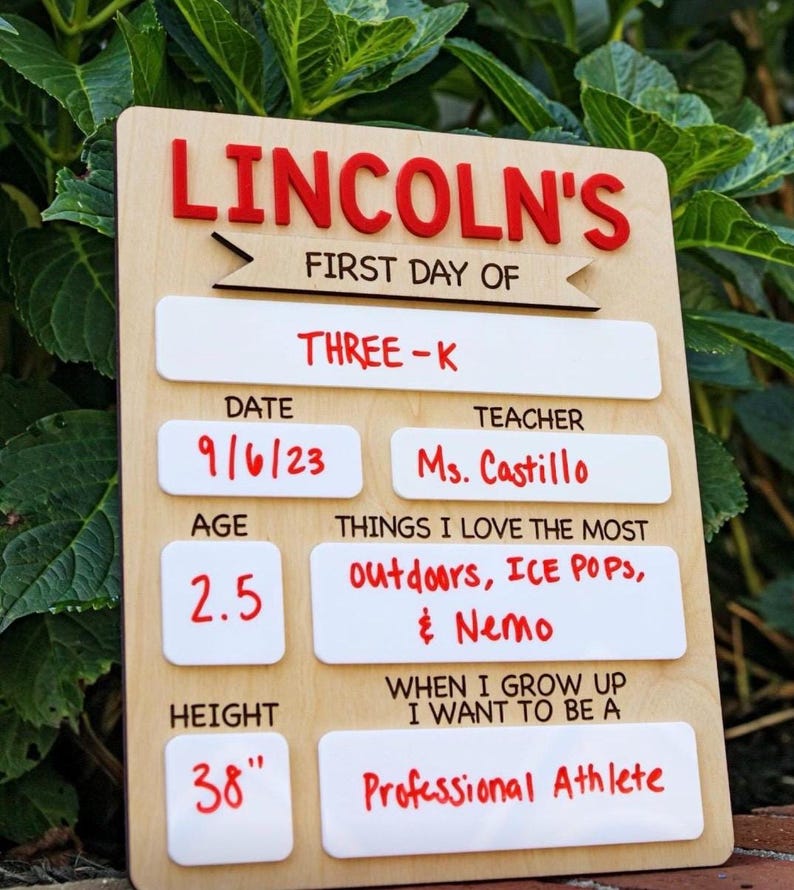 LINCOLN'S
FIRST DAY OF
THREE-K
DATE
TEACHER
9/6/23
Ms. Castillo
AGE
THINGS I LOVE THE MOST
2.5
outdoors, ICE POPS,
& Nemo
HEIGHT
WHEN I GROW UP
I WANT TO BE A
38"
Professional Athlete